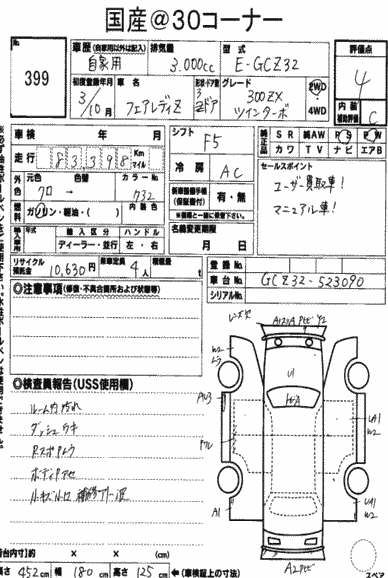 国産@30コーナー
No.
399
車歴 (自家用以外は記入)
自家用
排気量
3.000cc
型式
E-GCZ32
評価点
4
内装
補助評価
C
初度登録年月
3/10月
車名
フェアレディZ
形状・ドア数
3ドア
グレード
300ZX
ツインターボ
2WD
4WD
車検 年 月
走行 83398 Km マイル
シフト
F5
冷房
AC
純正品
SR 純AW PS PW
カワ TV ナビ エアB
セールスポイント
ユーザー買取車!
マニュアル車!
外色
元色 色替 カラーNo.
クロ → 732
燃料
ガソリン・軽油・( )
内装色
輸入車
年式 輸入区分 ハンドル
ディーラー・並行 左・右
新車時整備手帳
(保証書付)
有・無
名義変更期限
月 日
リサイクル
預託金
10,630円
乗車定員
4人
積載量
t
登録No.
車台No.
GCZ32-523090
シリアルNo.
◎注意事項 (修復・不具合箇所および状態等)
◎検査員報告(USS使用欄)
ルーム内汚れ
ダッシュウキ
ボディアセ
A1
U1
UA1
W2
A2
(cm)
長さ 452cm 幅 180cm 高さ 125cm ←(車検証上の寸法)